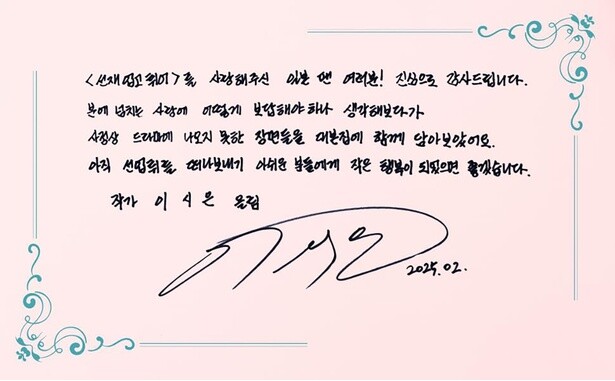 <선재업고튀어>를 사랑해주신 일본 팬 여러분! 진심으로 감사드립니다.
분에 넘치는 사랑에 어떻게 보답해야하나 생각해보다가
사정상 드라마에 나오지 못한 장면들을 대본집에 함께 담아보았어요.
아직 선업튀를 떠나보내기 아쉬운 분들에게 작은 행복이 되었으면 좋겠습니다.
작가 이시은 올림
이시은
2025.02.